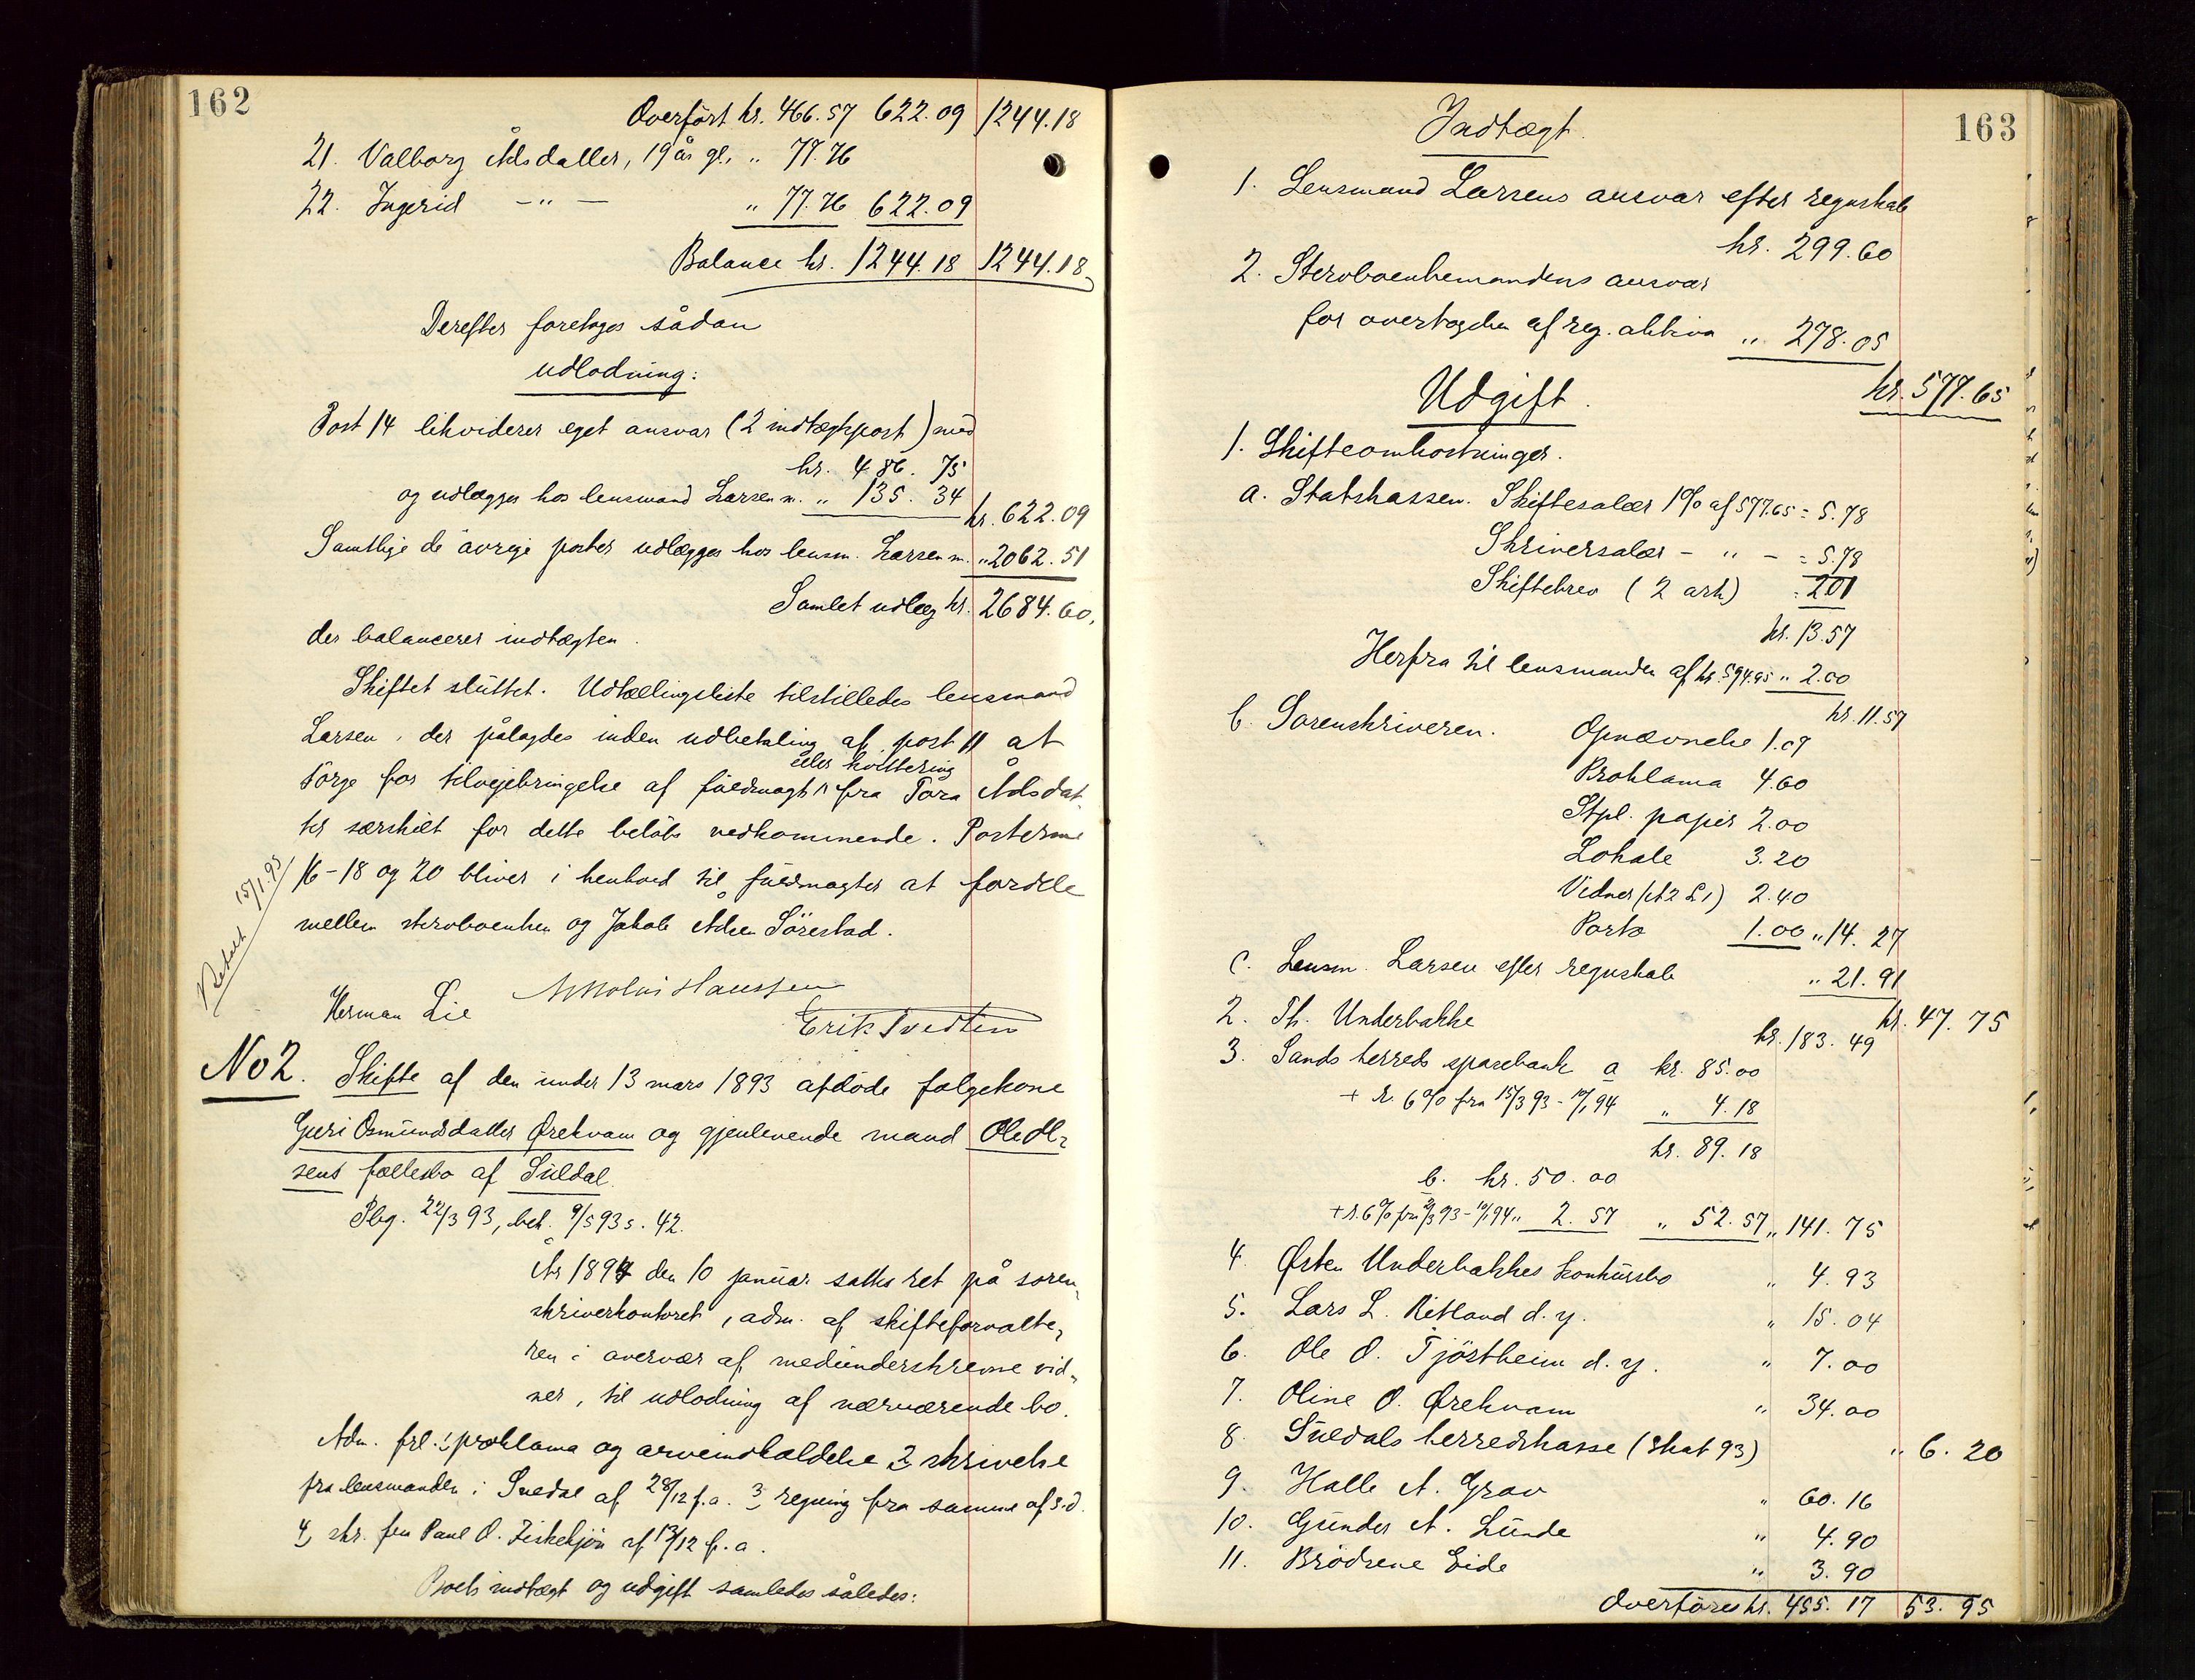 162
Overført kr. 466.57 622.09 1244.18
21. Valborg Adsdatter, 19 år gl. „ 77.76
22. Ingerid – „ – „ 77.76 622.09
Balance kr. 1244.18 1244.18
Derefter foretoges sådan
udlodning:
Post 14 likviderer eget ansvar (2 indtægtspost) med
kr. 486.75
og udlægges hos lensmand Larsen m. „ 135.34
kr. 622.09
Samtlige de øvrige poster udlægges hos lensm. Larsen m. „ 2062.51
Samlet udlæg kr. 2684.60,
der balancerer indtægten.
Skiftet sluttet. Udtællingsliste tilstilledes lensmand
Larsen, der pålagdes inden udbetaling af post 11 at
eller kvittering
sørge for tilvejebringelse af fuldmagt fra Tora Adsdat-
ter særskilt for dette beløbs vedkommende. Posterne
16-18 og 20 bliver i henhold til fuldmagter at fordele
mellem stervboenken og Jakob Adsen Sørestad.
Betalt 15/1.95
Herman Lie Holm Hanssen
Erik Tvedten
No 2. Skifte af den under 13 mars 1893 afdøde følgekone
Guri Osmundsdatter Ørekvam og gjenlevende mand Ole Ol-
sens fællesbo af Suldal.
Pbg. 22/3 93, beh. 9/5 93 s. 42.
År 1894 den 10 januar sattes ret på soren-
skriverkontoret, adm. af skifteforvalte-
ren i overvær af medunderskrevne vid-
ner, til udlodning af nærværende bo.
Adm. frl. 1, proklama og arveindkaldelse 2, skrivelse
fra lensmanden i Suldal af 28/12 f.a. 3, regning fra samme af s.d.
4, skr. fra Paul O. Fiskekjøn af 13/12 f.a.
Boets indtægt og udgift samledes således:
163
Indtægt.
1. Lensmand Larsens ansvar efter regnskab
kr. 299.60
2. Stervboenkemandens ansvar
for overtagelsen af reg. aktiva „ 278.05
kr. 577.65
Udgift.
1. Skifteomkostninger.
a. Statskassen. Skiftesalær 1% af 577.65 = 5.78
Skriversalær – „ – = 5.78
Skiftebrev (2 ark) = 2.01
kr. 13.57
Herfra til lensmanden af kr. 594.95 „ 2.00
kr. 11.57
b. Sorenskriveren. Opnævnelse 1.07
Proklama 4.60
Stpl. papir 2.00
Lokale 3.20
Vidner (A2 L1) 2.40
Porto 1.00 „ 14.27
c. Lensm. Larsen efter regnskab „ 21.91
kr. 47.75
2. Th. Underbakke kr. 183.49
3. Sands herreds sparebank a kr. 85.00
+ r. 6% fra 15/3 93 - 10/1 94 „ 4.18
kr. 89.18
b. kr. 50.00
+ r. 6% fra 2/3 93 - 10/1 94 „ 2.57 „ 52.57 „ 141.75
4. Østen Underbakkes konkursbo „ 4.93
5. Lars L. Ritland d.y. „ 15.04
6. Ole O. Tjøstheim d.y. „ 7.00
7. Oline O. Ørekvam „ 34.00
8. Suldals herredskasse (skat 93) „ 6.20
9. Halle A. Grov „ 60.16
10. Gunder A. Lunde „ 4.90
11. Brødrene Eide „ 3.90
Overføres kr. 455.17 53.95